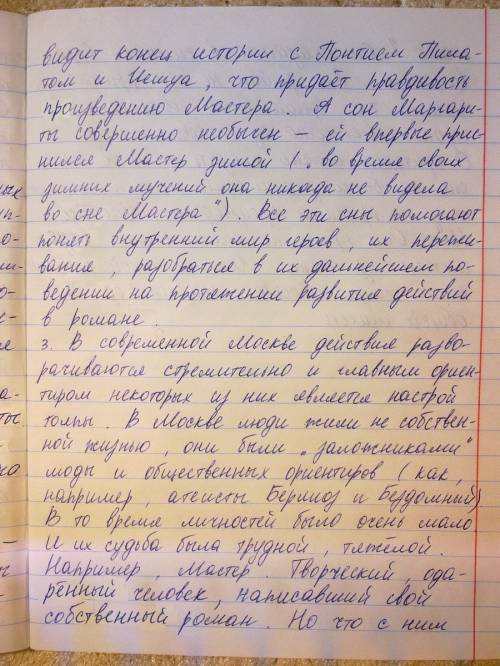 видит конец истории с Понтием Пила-
том и Иешуа, что придаёт правдивость
произведению Мастера. А сон Маргари-
ты совершенно необычен – ей впервые прис-
нился Мастер зимой („во время своих
зимних мучений она никогда не видела
во сне Мастера"). Все эти сны помогают
понять внутренний мир героев, их пережи-
вания, разобраться в их дальнейшем по-
ведении на протяжении развития действий
в романе.
3. В современной Москве действия разво-
рачиваются стремительно и главным ориен-
тиром некоторых из них является настрой
толпы. В Москве люди жили не собствен-
ной жизнью, они были „заложниками"
моды и общественных ориентиров (как,
например, атеисты Берлиоз и Бездомный)
В то время личностей было очень мало
И их судьба была трудной, тяжёлой.
Например, Мастер. Творческий, ода-
рённый человек, написавший свой
собственный роман. Но что с ним